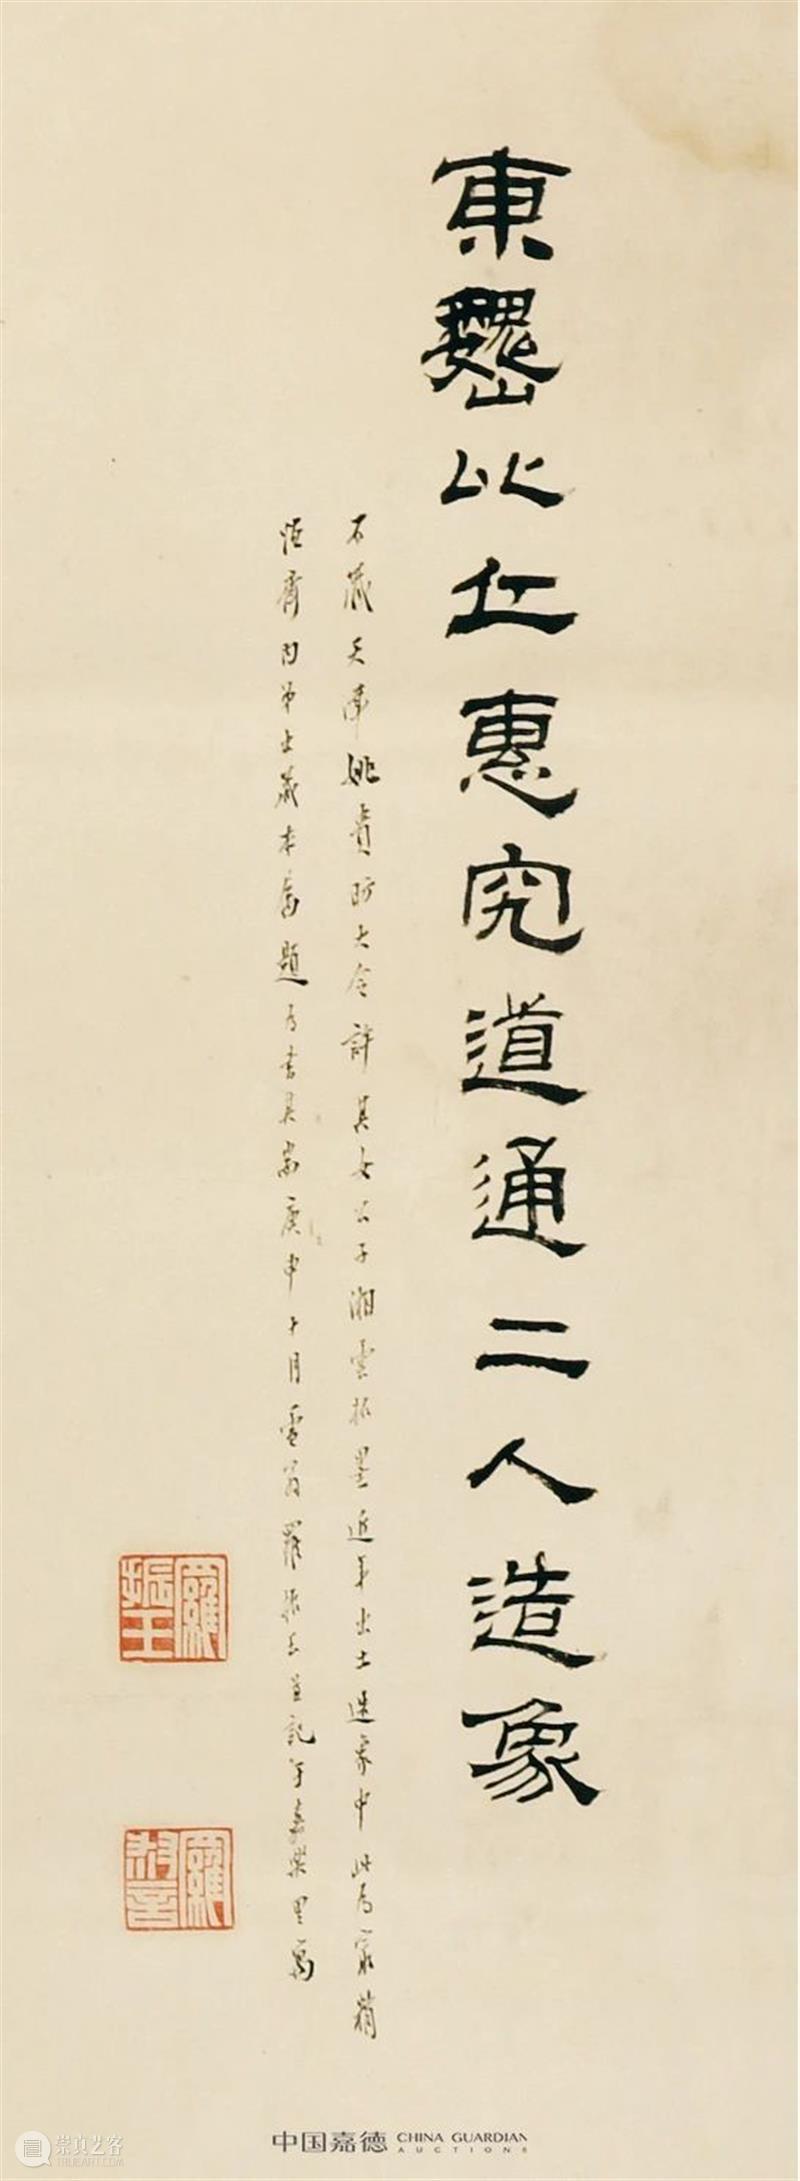 東魏比仁惠究道通二人造象
石藏天津姚貴昉大令許其女公子湘雲拓墨近年出土造象中此為最精
恒齋內弟出藏本屬題為書其耑庚申十月雪翁羅振玉並記于嘉樂里寓
羅振玉
羅叔言
中国嘉德 CHINA GUARDIAN AUCTIONS
崇真艺客